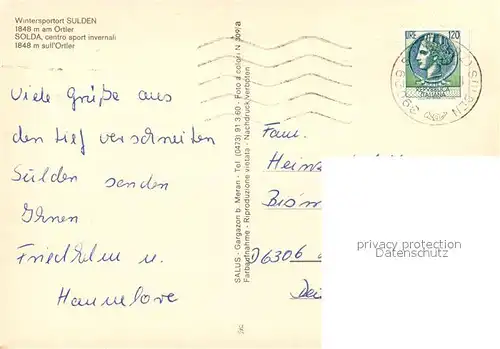 Wintersportort SULDEN
1848 m am Ortler
SOLDA, centro sport invernali
1848 m sull'Ortler
Viele Grüße aus
den tief verschneiten
Sulden senden
Ihnen
Friedhelm u.
Hannelore
SALUS - Gargazon b. Meran - Tel. (0473) 91.3.60 - Foto a colori N 309/a
Farbaufnahme - Riproduzione vietata - Nachdruck verboten
LIRE 120
REPUBBLICA
ITALIANA
SULDEN
39029
Fam.
Heinz
D6306
privacy protection
www.ansichtskartenversand.com